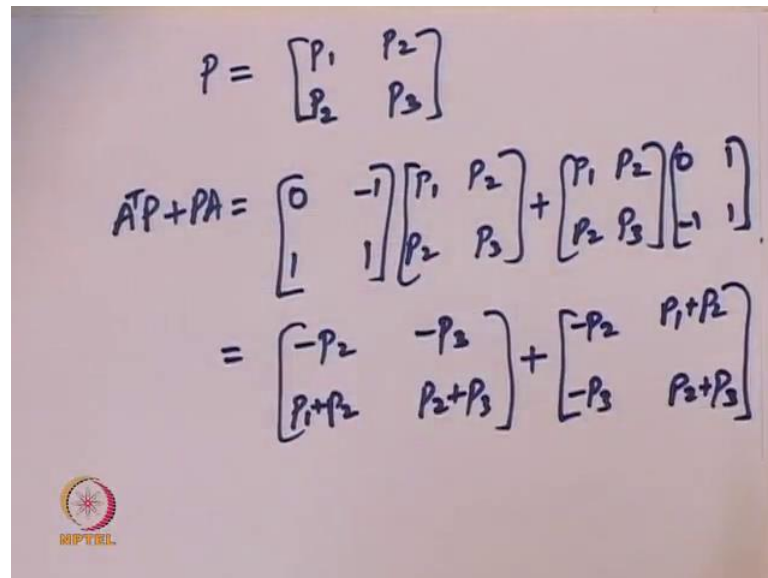 P = [P₁ P₂
P₂ P₃]
AᵀP+PA = [0 -1
1 1] [P₁ P₂
P₂ P₃] + [P₁ P₂
P₂ P₃] [0 1
-1 1].
= [-P₂ -P₃
P₁+P₂ P₂+P₃] + [-P₂ P₁+P₂
-P₃ P₂+P₃]
NPTEL